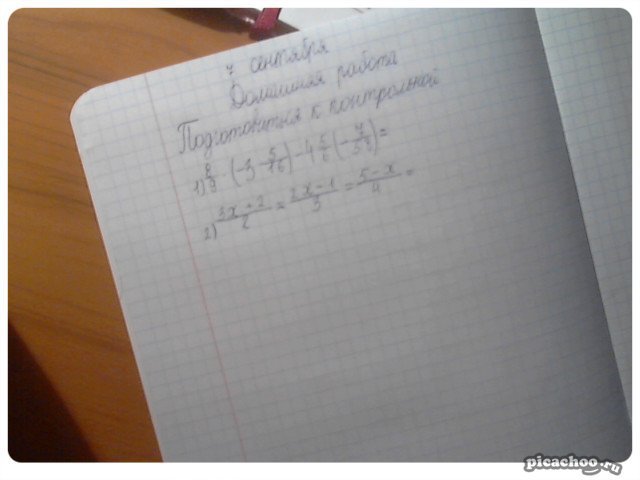 7 сентября
Домашняя работа
Подготовиться к контрольной
1) 8/9 · (-3 5/16) - 4 5/6 (- 7/58) =
2) 3x + 2/2 = 2x - 1/3 = 5 - x/4 =
picachoo.ru